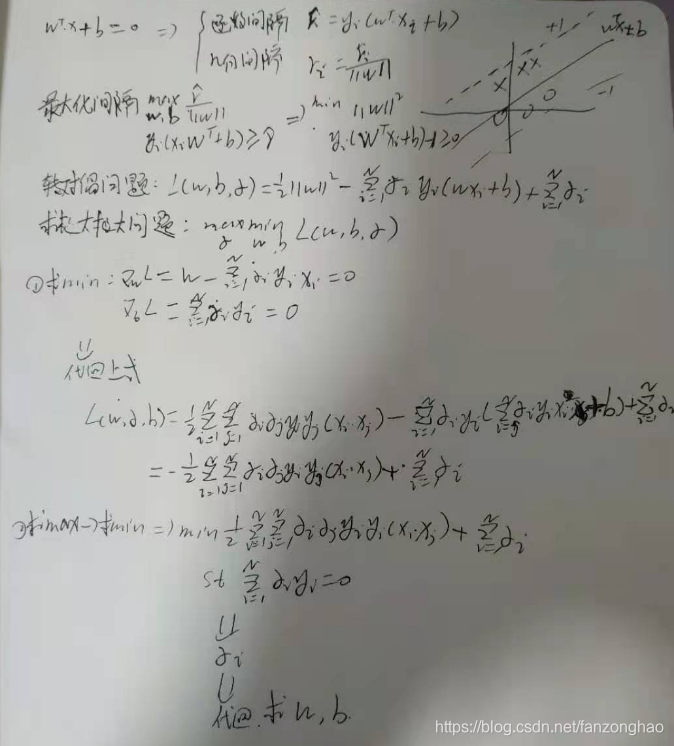 wᵀ·x+b=0 => { 函数间隔 r̂ᵢ=yᵢ(wᵀ·xᵢ+b)
几何间隔 rᵢ=r̂ᵢ/||w||
+1 wᵀx+b
-1
最大化间隔 max w,b r̂/||w|| => min ||w||²
yᵢ(xᵢwᵀ+b)≥r̂ yᵢ(wᵀxᵢ+b)-1≥0
转对偶问题: L(w,b,α)=½||w||²-∑ᵢ₌₁ᴺ αᵢyᵢ(wxᵢ+b)+∑ᵢ₌₁ᴺ αᵢ
求极大极大问题: max α min w,b L(w,b,α)
①求min: ∇wL=w-∑ᵢ₌₁ᴺ αᵢyᵢxᵢ=0
∇bL=∑ᵢ₌₁ᴺ αᵢyᵢ=0
⇓
代回上式
L(w,α,b)=½∑ᵢ₌₁ᴺ∑ⱼ₌₁ᴺ αᵢαⱼyᵢyⱼ(xᵢ·xⱼ)-∑ᵢ₌₁ᴺ αᵢyᵢ(∑ αᵢyᵢxᵢ·xⱼ+b)+∑ᵢ₌₁ᴺ αᵢ
=-½∑ᵢ₌₁ᴺ∑ⱼ₌₁ᴺ αᵢαⱼyᵢyⱼ(xᵢ·xⱼ)+∑ᵢ₌₁ᴺ αᵢ
②求max->求min => min ½∑ᵢ₌₁ᴺ∑ⱼ₌₁ᴺ αᵢαⱼyᵢyᵢ(xᵢ·xⱼ)+∑ᵢ₌₁ᴺ αᵢ
st ∑ᵢ₌₁ᴺ αᵢyᵢ=0
⇓
αᵢ
⇓
代回求w,b.
https://blog.csdn.net/fanzonghao